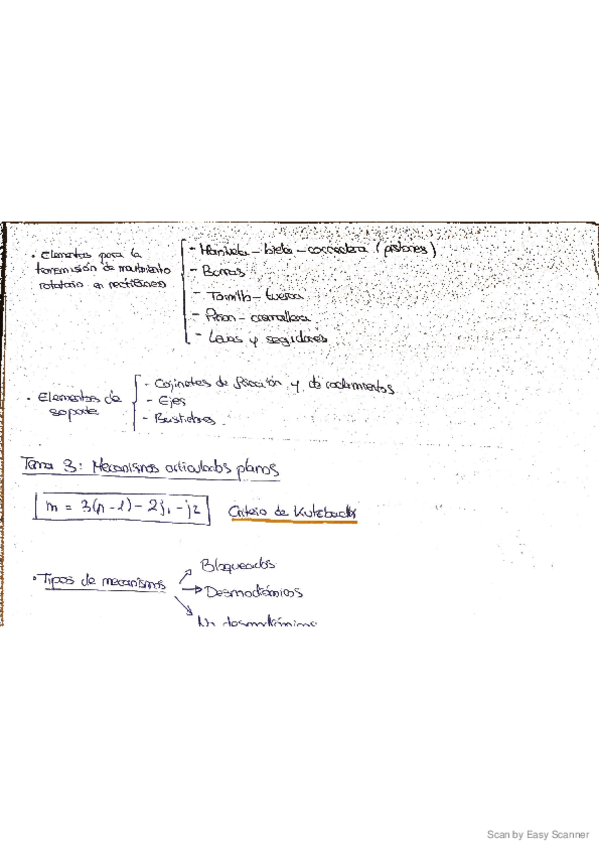 • Elementos para la
transmisión de movimiento
rotatorio en rectilíneo
- Manivela - biela - corredera (pistones)
- Barras
- Tornillo - tuerca
- Piñon - cremallera
- Levas y seguidores
• Elementos de
soporte
- Cojinetes de fricción y de rodamientos
- Ejes
- Bastidores
Tema 3: Mecanismos articulados planos
m = 3(n-1) - 2j₁ - j₂ Criterio de Kutzbach
• Tipos de mecanismos
Bloqueados
Desmodrómicos
No desmodrómicos
Scan by Easy Scanner